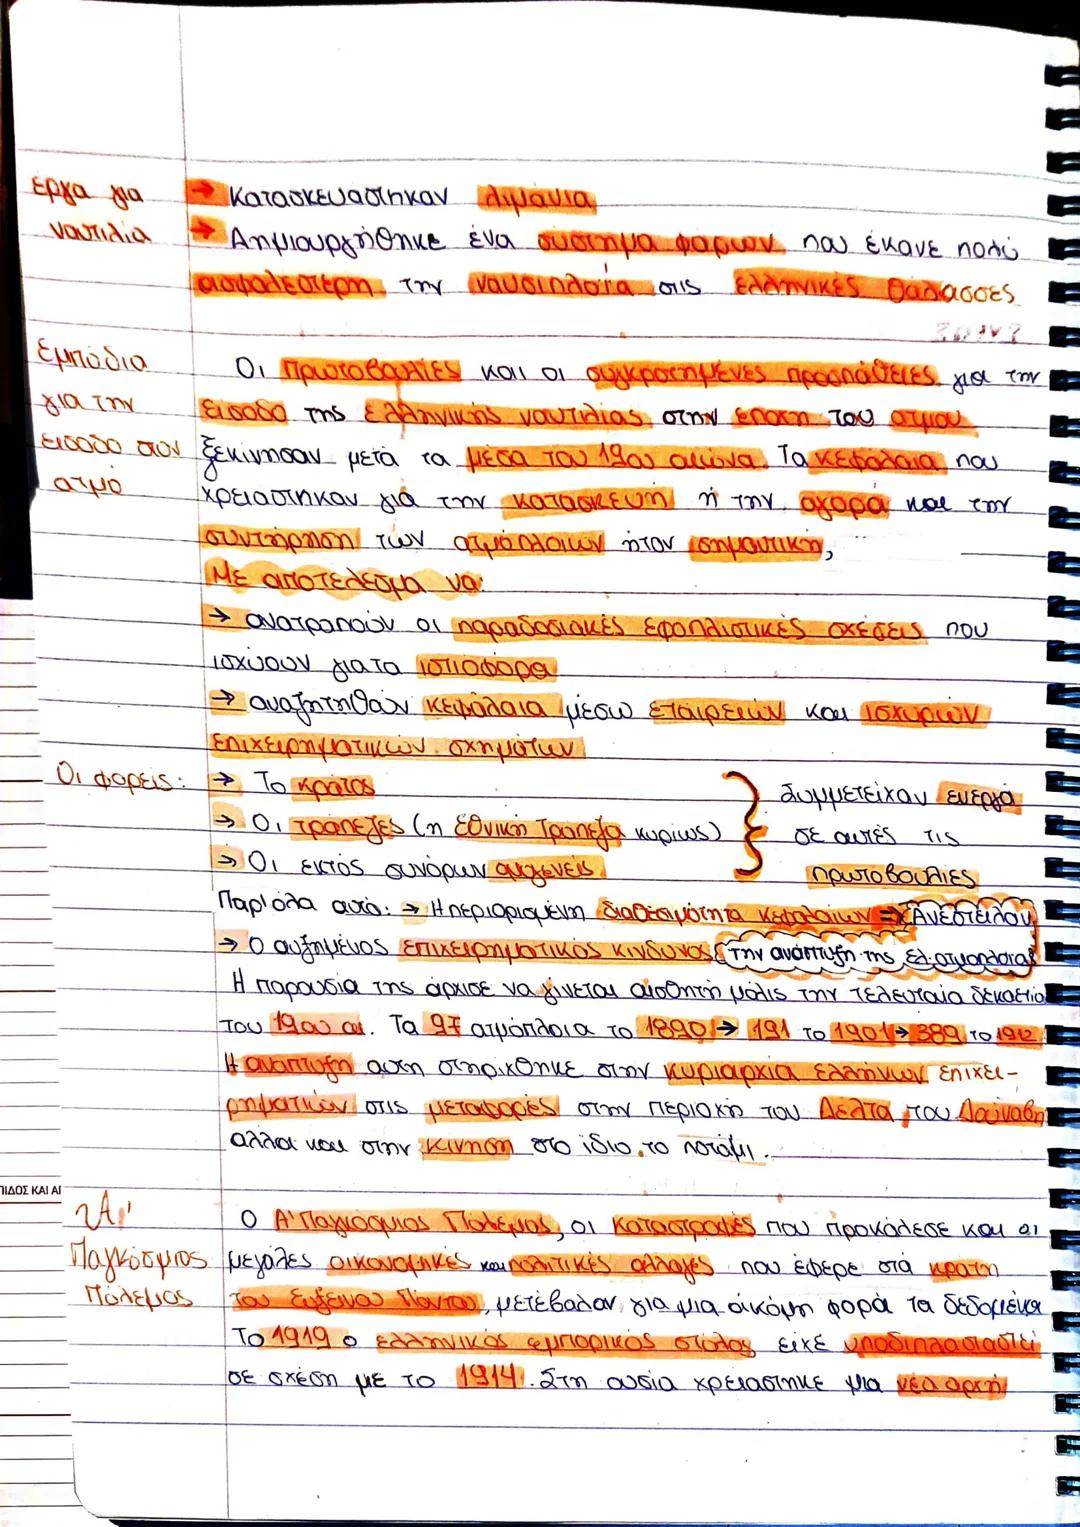 Εργα για
ναυτιλία
→ Κατασκευάστηκαν λιμάνια
→ Δημιουργήθηκε ένα σύστημα φάρων που έκανε πολύ
ασφαλέστερη την ναυσιπλοΐα στις ελληνικές θάλασσες
Εμπόδια
για την
είσοδο στον
ατμό
Οι πρωτοβουλίες και οι συγκροτημένες προσπάθειες για την
είσοδο της ελληνικής ναυτιλίας στην εποχή του ατμού
ξεκίνησαν μετά τα μέσα του 19ου αιώνα. Τα κεφάλαια που
χρειάστηκαν για την κατασκευή ή την αγορά και την
συντήρηση των ατμόπλοιων ήταν σημαντική,
Με αποτέλεσμα να:
→ ανατραπούν οι παραδοσιακές εφοπλιστικές σχέσεις που
ισχύουν για τα ιστιοφόρα
→ αναζητηθάν κεφάλαια μέσω εταιρειών και ισχυρών
επιχειρηματικών σχημάτων
Οι φορείς: → Το κράτος
→ Οι τράπεζες (η Εθνική Τράπεζα κυρίως)
→ Οι εκτός συνόρων ομογενείς
Συμμετείχαν ενεργά
σε αυτές τις
πρωτοβουλίες
Παρ'όλα αυτά: → Η περιορισμένη διαθεσιμότητα κεφαλαίων ⇒ Ανέστειλαν
→ Ο αυξημένος επιχειρηματικός κίνδυνος την ανάπτυξη της ελ. ατμοπλοΐας
Η παρουσία της άρχισε να γίνεται αισθητή μόλις την τελευταία δεκαετία
του 19ου αι. Τα 97 ατμόπλοια το 1890 → 191 το 1901 → 389 το 1912.
Η ανάπτυξη αυτή στηρίχθηκε στην κυριαρχία ελλήνων επιχει-
ρηματιών στις μεταφορές στην περιοχή του Δέλτα του Δούναβη
αλλά και στην κίνηση στο ίδιο το ποτάμι.
Α'
Παγκόσμιος
Πόλεμος
Ο Α' Παγκόσμιος Πόλεμος, οι καταστροφές που προκάλεσε και οι
μεγάλες οικονομικές και πολιτικές αλλαγές που έφερε στα κράτη
του Εύξεινου Πόντου, μετέβαλαν για μια ακόμη φορά τα δεδομένα
Το 1919 ο ελληνικός εμπορικός στόλος είχε υποδιπλασιαστεί
σε σχέση με το 1914. Στη ουσία χρειάστηκε μια νέα αρχή
ΠΙΔΟΣ ΚΑΙ ΑΙ